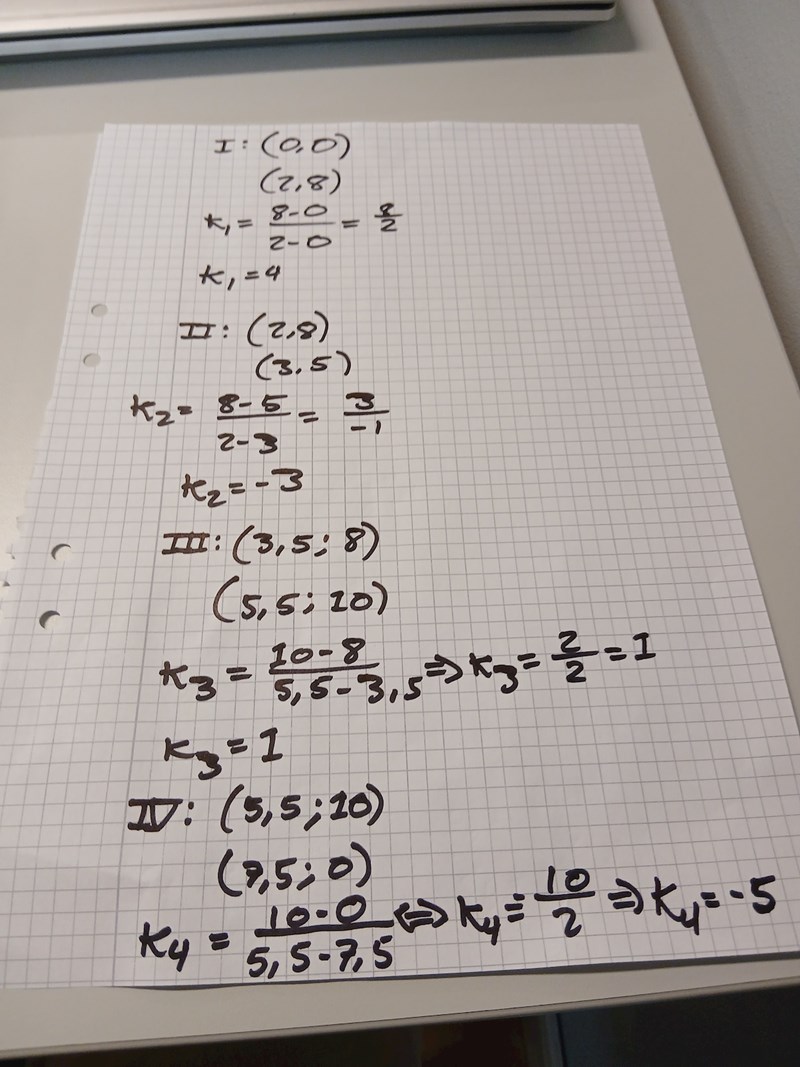 I: (0,0)
(2,8)
K₁ = (8-0)/(2-0) = 8/2
K₁ = 4
II: (2,8)
(3,5)
K₂ = (8-5)/(2-3) = 3/-1
K₂ = -3
III: (3,5; 8)
(5,5; 10)
K₃ = (10-8)/(5,5-3,5) ⇒ K₃ = 2/2 = 1
K₃ = 1
IV: (5,5; 10)
(7,5; 0)
K₄ = (10-0)/(5,5-7,5) ⇔ K₄ = 10/2 ⇒ K₄ = -5